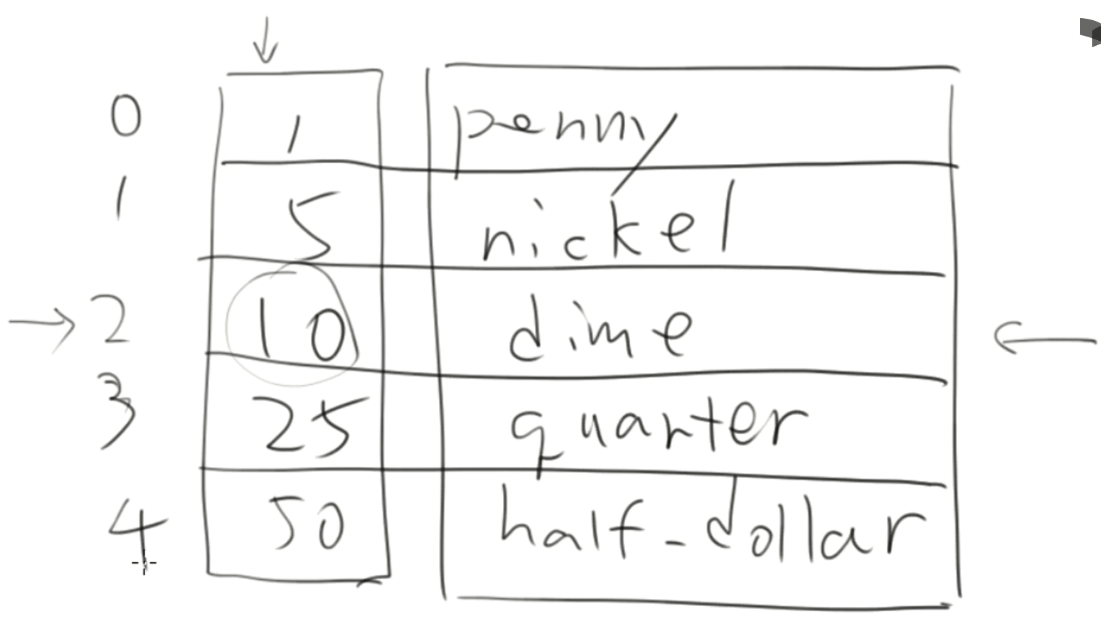 0 1 penny
1 5 nickel
2 10 dime
3 25 quarter
4 50 half-dollar